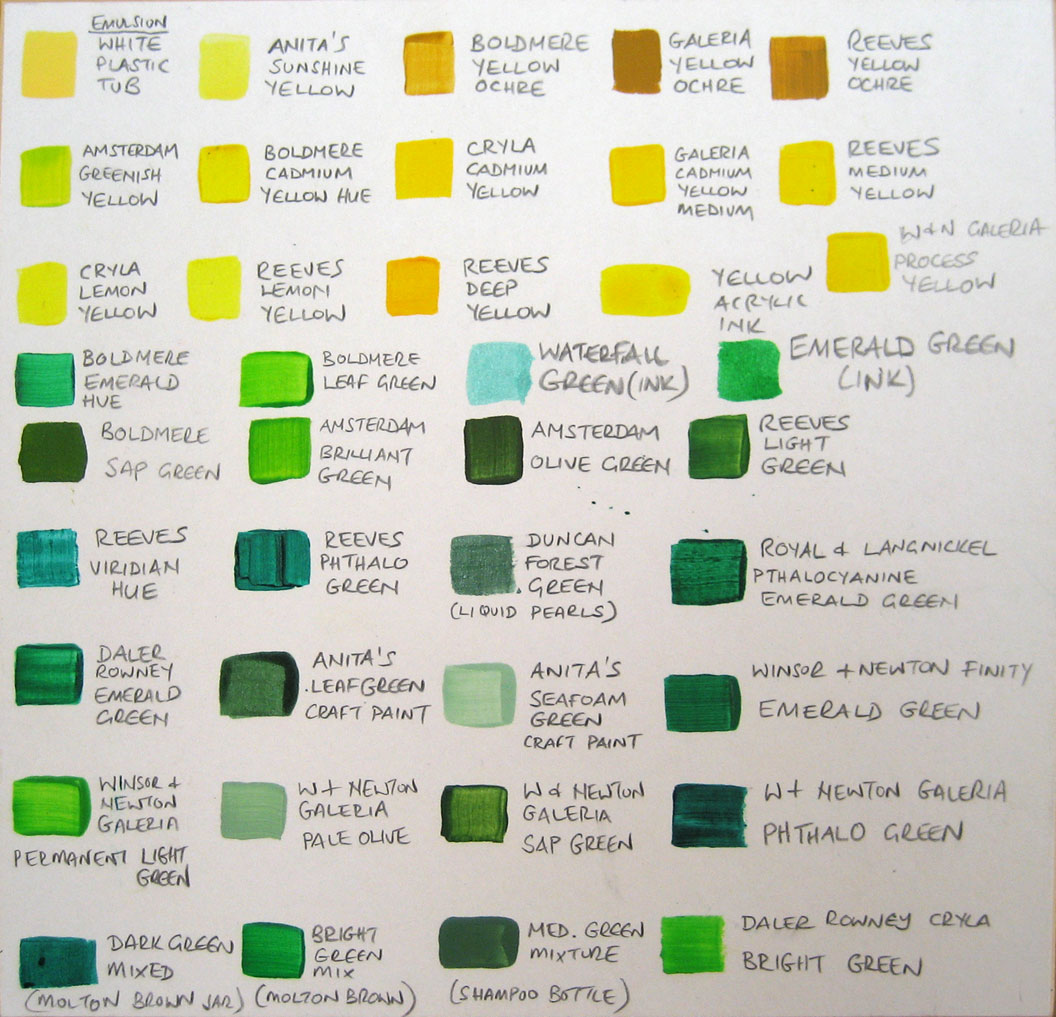 EMULSION
WHITE
PLASTIC
TUB
ANITA'S
SUNSHINE
YELLOW
BOLDMERE
YELLOW
OCHRE
GALERIA
YELLOW
OCHRE
REEVES
YELLOW
OCHRE
AMSTERDAM
GREENISH
YELLOW
BOLDMERE
CADMIUM
YELLOW HUE
CRYLA
CADMIUM
YELLOW
GALERIA
CADMIUM
YELLOW
MEDIUM
REEVES
MEDIUM
YELLOW
CRYLA
LEMON
YELLOW
REEVES
LEMON
YELLOW
REEVES
DEEP
YELLOW
YELLOW
ACRYLIC
INK
W+N GALERIA
PROCESS
YELLOW
BOLDMERE
EMERALD
HUE
BOLDMERE
LEAF GREEN
WATERFALL
GREEN (INK)
EMERALD GREEN
(INK)
BOLDMERE
SAP GREEN
AMSTERDAM
BRILLIANT
GREEN
AMSTERDAM
OLIVE GREEN
REEVES
LIGHT
GREEN
REEVES
VIRIDIAN
HUE
REEVES
PHTHALO
GREEN
DUNCAN
FOREST
GREEN
(LIQUID PEARLS)
ROYAL & LANGNICKEL
PTHALOCYANINE
EMERALD GREEN
DALER
ROWNEY
EMERALD
GREEN
ANITA'S
LEAF GREEN
CRAFT PAINT
ANITA'S
SEAFOAM
GREEN
CRAFT PAINT
WINSOR + NEWTON FINITY
EMERALD GREEN
WINSOR &
NEWTON
GALERIA
PERMANENT LIGHT
GREEN
W + NEWTON
GALERIA
PALE OLIVE
W & NEWTON
GALERIA
SAP GREEN
W + NEWTON GALERIA
PHTHALO GREEN
DARK GREEN
MIXED
(MOLTON BROWN JAR)
BRIGHT
GREEN
MIX
(MOLTON BROWN)
MED. GREEN
MIXTURE
(SHAMPOO BOTTLE)
DALER ROWNEY CRYLA
BRIGHT GREEN